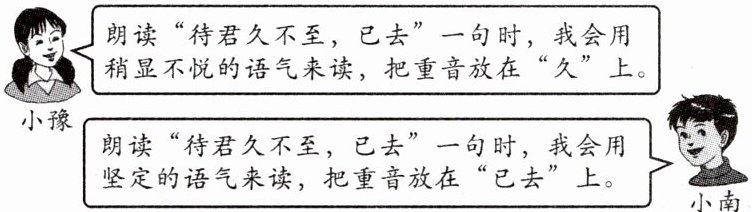 朗读“待君久不至，已去”一句时，我会用
稍显不悦的语气来读，把重音放在“久”上。
小豫
朗读“待君久不至，已去”一句时，我会用
坚定的语气来读，把重音放在“已去”上。
小南